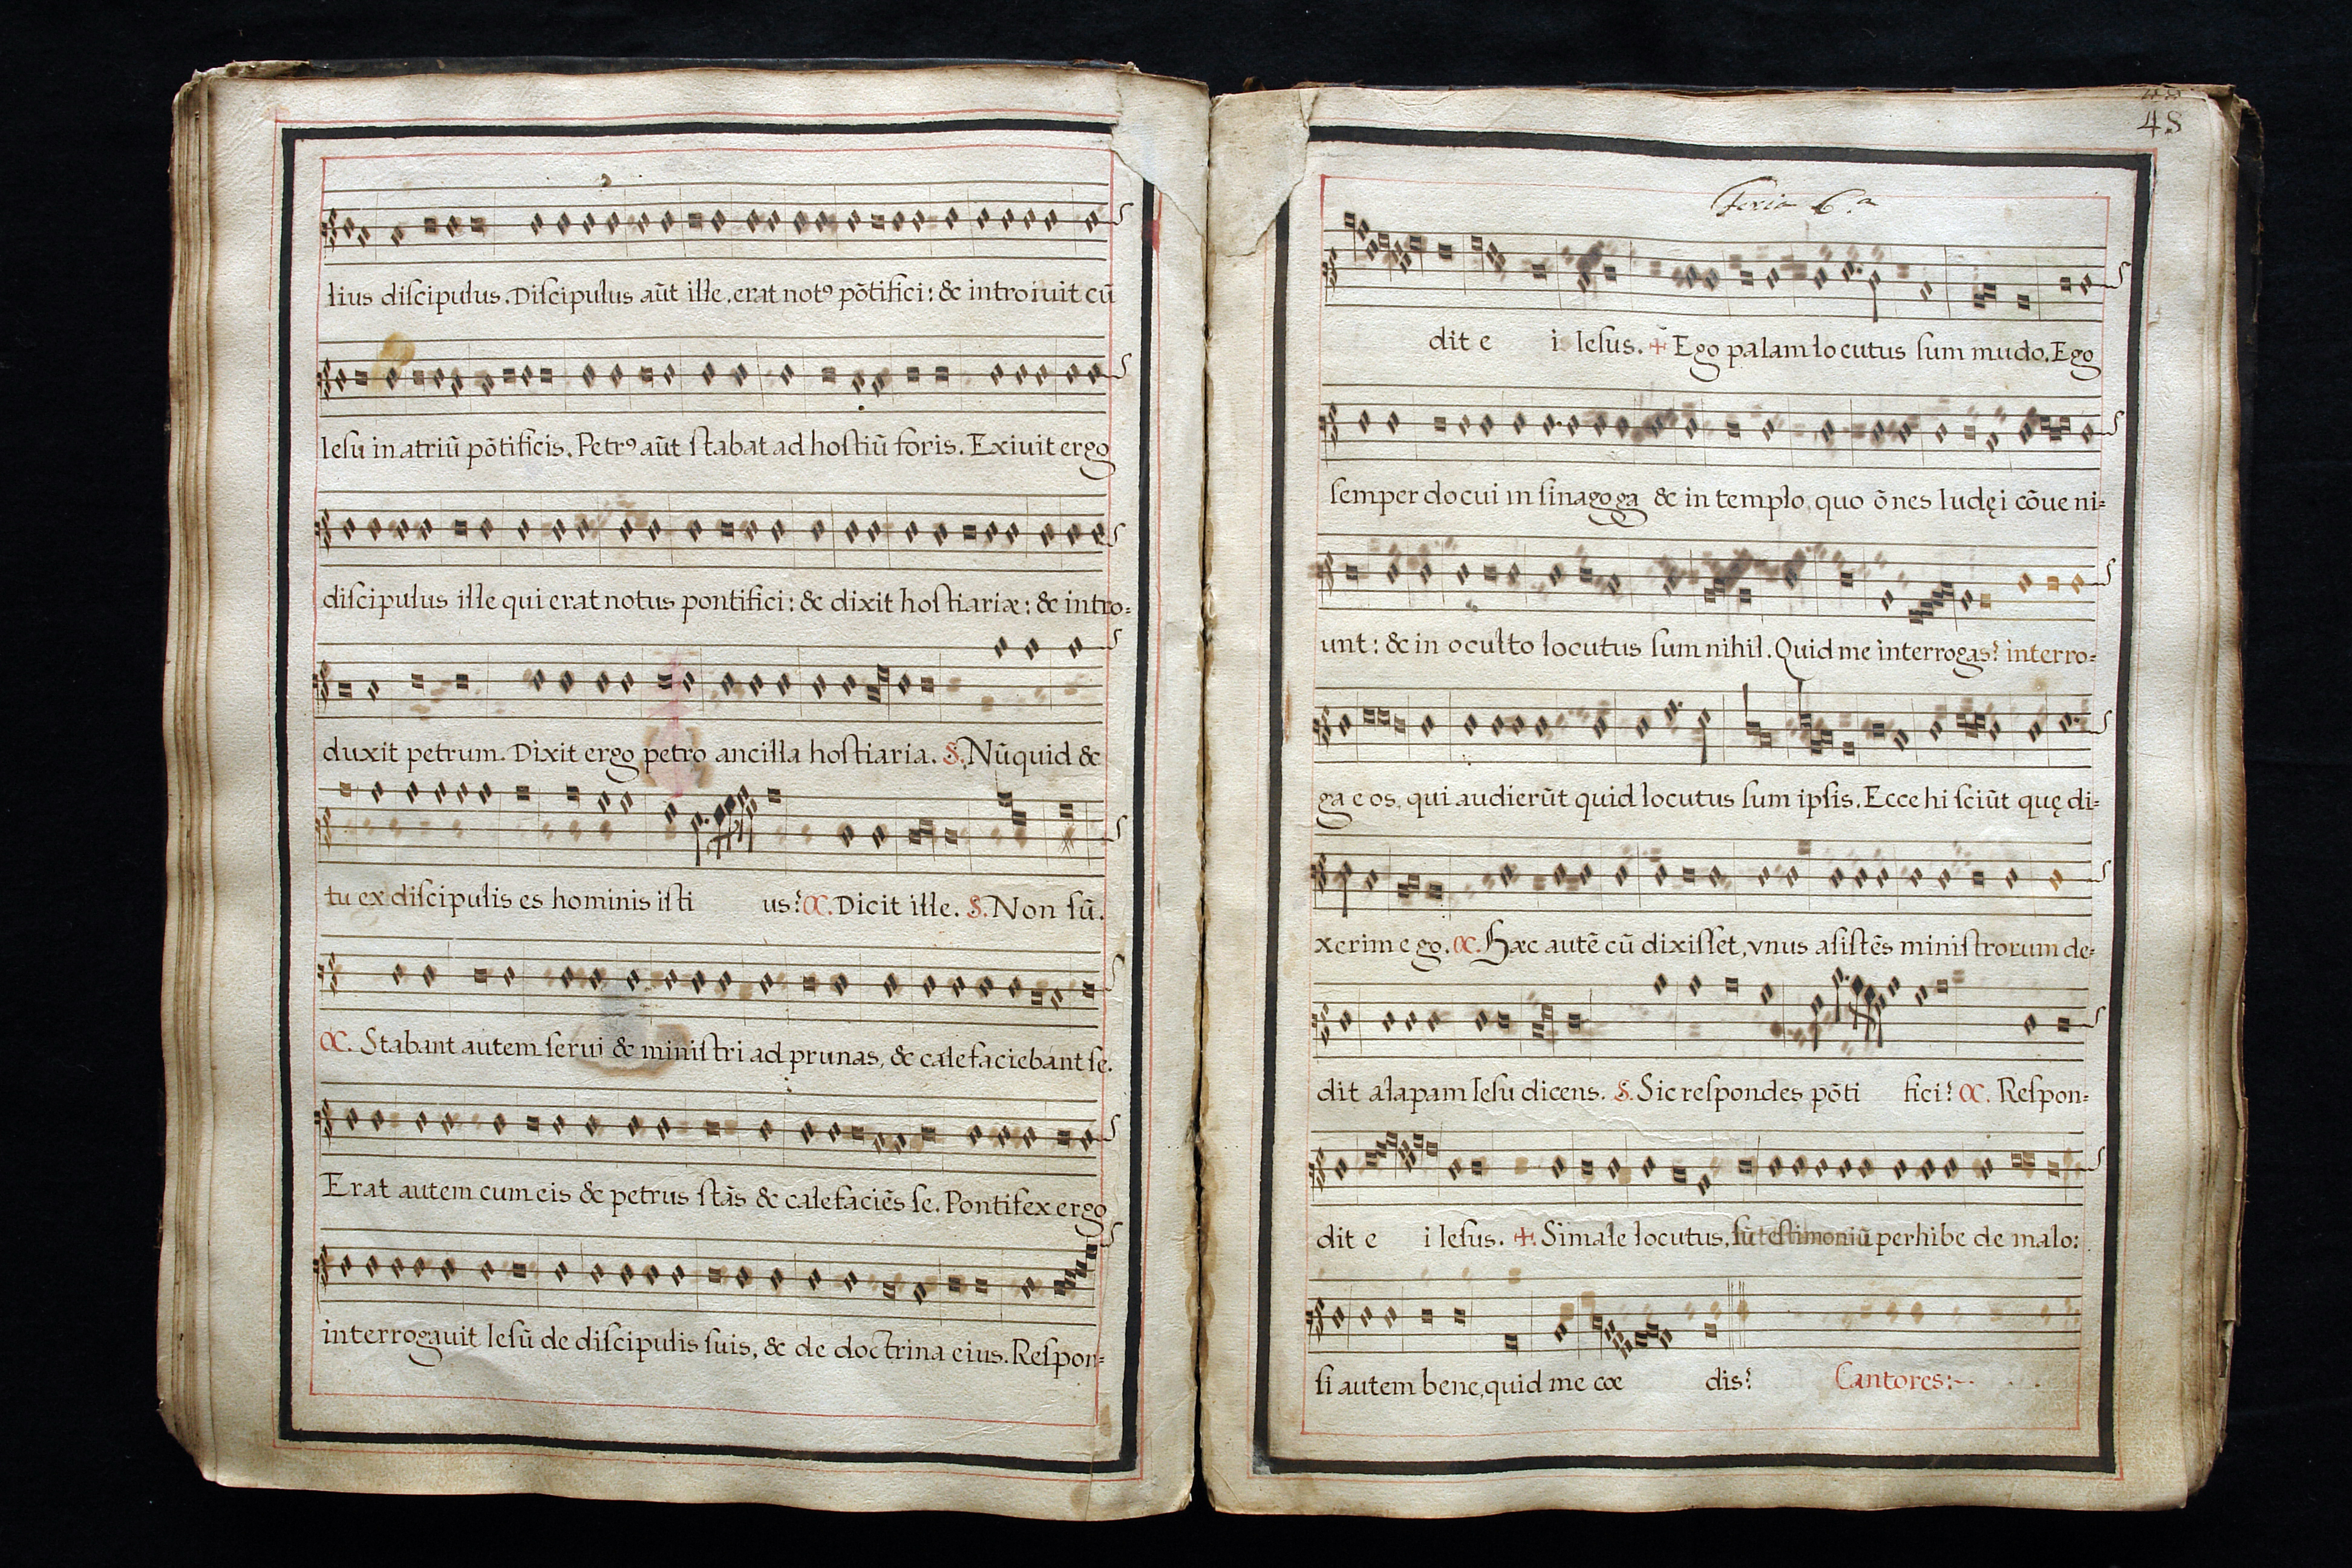 lius diſcipulus. Diſcipulus aūt ille, erat notꝰ põtifici: & introiuit cū
Ieſu in atriū põtificis. Petrꝰ aūt ſtabat ad hoſtiū foris. Exiuit ergo
diſcipulus ille qui erat notus pontifici: & dixit hoſtiariæ: & intro=
duxit petrum. Dixit ergo petro ancilla hoſtiaria. S. Nūquid &
tu ex diſcipulis es hominis iſti us? C. Dicit ille. S. Non ſū.
C. Stabant autem ſerui & miniſtri ad prunas, & calefaciebant ſe.
Erat autem cum eis & petrus ſtās & calefaciēs ſe. Pontifex ergo
interrogauit Ieſū de diſcipulis ſuis, & de doctrina eius. Reſpon=
48
Feria 6.a
dit e i Ieſus. + Ego palam locutus ſum mūdo. Ego
ſemper docui in ſinagoga & in templo, quo õnes Iudęi cõueni=
unt: & in oculto locutus ſum nihil. Quid me interrogas? interro=
ga eos, qui audierūt quid locutus ſum ipſis. Ecce hi ſciūt quę di=
xerim ego. C. Hæc autē cū dixiſſet, vnus aſiſtēs miniſtrorum de=
dit alapam Ieſu dicens. S. Sic reſpondes põti fici? C. Reſpon=
dit e i Ieſus. +. Si male locutus, ſū teſtimoniū perhibe de malo:
ſi autem bene, quid me cæ dis? Cantores:~